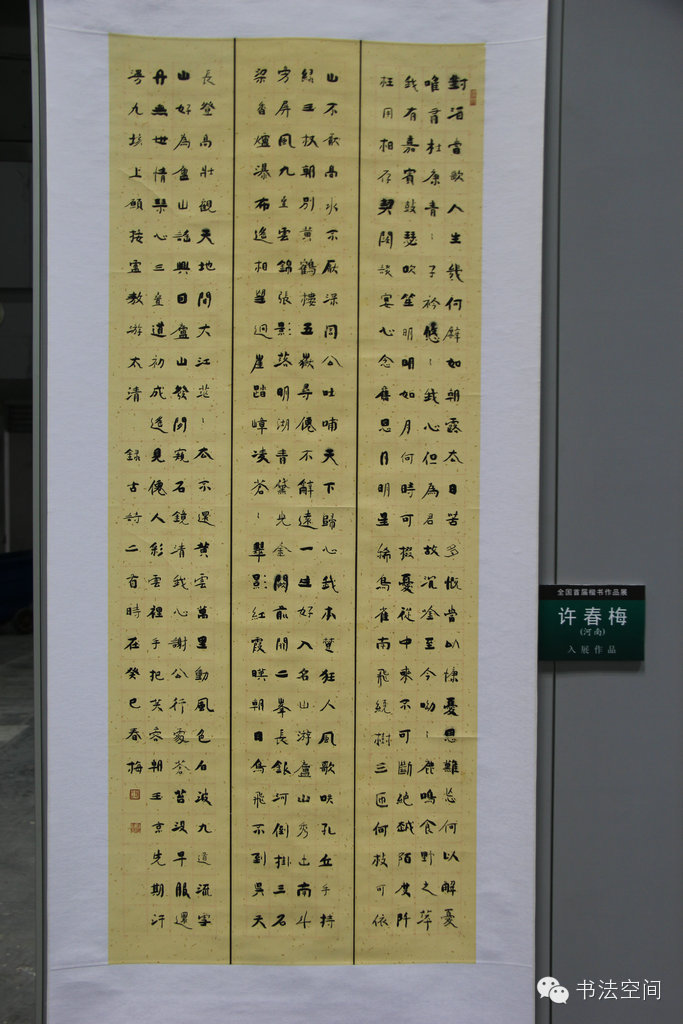 對酒當歌人生幾何辟如朝露去日苦多慨當以慷憂思難忘何以解憂
唯有杜康青〻子衿悠〻我心但為君故沉吟至今呦〻鹿鳴食野之苹
我有嘉賓鼓瑟吹笙明明如月何時可掇憂從中來不可斷絕越陌度阡
枉用相存契闊談宴心念舊恩月明星稀烏雀南飛繞樹三匝何枝可依
山不厭高水不厭深周公吐哺天下歸心我本楚狂人風歌咲孔丘手持
綠玉杖朝別黃鶴樓五嶽尋僊不辭遠一生好入名山游廬山秀出南斗
旁屏風九疊雲錦張影落明湖青黛光金闕前開二峯長銀河倒掛三石
梁香爐瀑布遙相望迴崖踏嶂凌蒼〻翠影紅霞暎朝日鳥飛不到吳天
長登高壯觀天地間大江茫〻去不還黃雲萬里動風色白波九道流雪
山好為廬山謠興因廬山發閒窺石鏡清我心謝公行處蒼苔沒早服還
丹無世情琴心三疊道初成遙見僊人彩雲裡手把芙蓉朝玉京先期汗
漫九垓上願接盧敖游太清 錄古詩二首時在癸巳春梅
全国首届楷书作品展
许春梅
(河南)
入展作品
书法空间